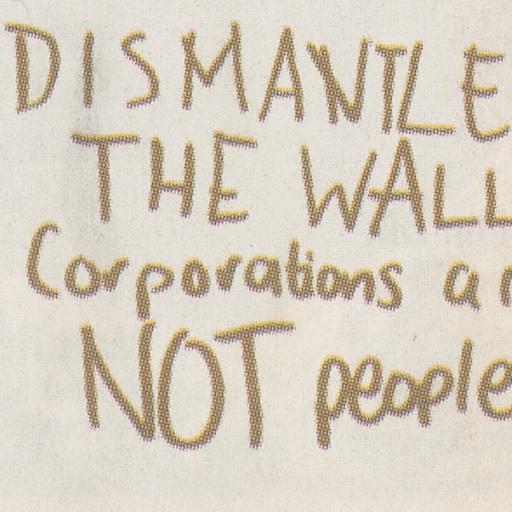 DISMANTLE
THE WALL
Corporations ar
NOT people